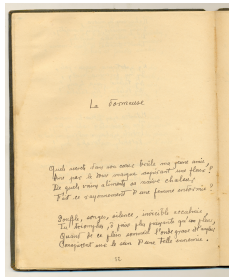 La Dormeuse
Quels secrets dans mon cœur brûle ma jeune amie,
Âme par le doux masque aspirant une fleur ?
De quels vains aliments sa naïve chaleur
Fait ce rayonnement d'une femme endormie ?
Souffle, songes, silence, invincible accalmie,
Tu triomphes, ô paix plus puissante qu'un pleur,
Quand de ce plein sommeil l'onde grave et l'ampleur
Conspirent sur le sein d'une telle ennemie.